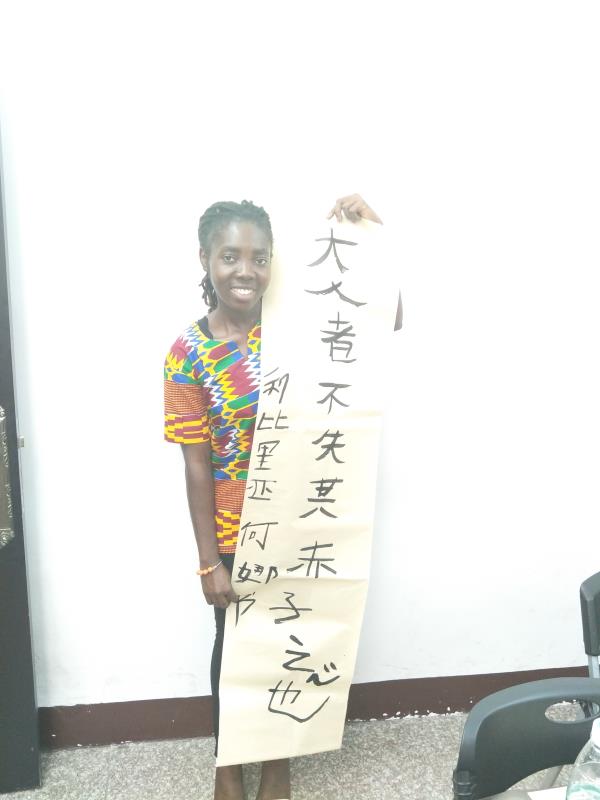 大人者不失其赤子之心也
利比里亚何娜书